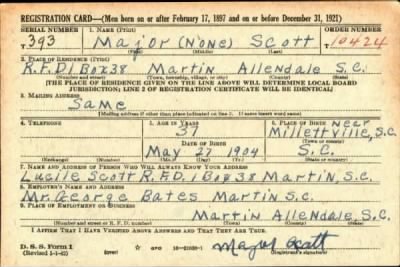 REGISTRATION CARD—(Men born on or after February 17, 1897 and on or before December 31, 1921)
SERIAL NUMBER 1. NAME (Print) ORDER NUMBER
T 393 Major (None) Scott 10424
(First) (Middle) (Last)
2. PLACE OF RESIDENCE (Print)
R.F.D1 Box 38 Martin Allendale S.C.
(Number and street) (Town, township, village, or city) (County) (State)
[THE PLACE OF RESIDENCE GIVEN ON THE LINE ABOVE WILL DETERMINE LOCAL BOARD
JURISDICTION; LINE 2 OF REGISTRATION CERTIFICATE WILL BE IDENTICAL]
3. MAILING ADDRESS
Same
(Mailing address if other than place indicated on line 2. If same insert word same)
4. TELEPHONE 5. AGE IN YEARS 6. PLACE OF BIRTH near
37 Millettville, S.C.
DATE OF BIRTH (Town or county)
May 27 1904 S.C.
(Exchange) (Number) (Mo.) (Day) (Yr.) (State or country)
7. NAME AND ADDRESS OF PERSON WHO WILL ALWAYS KNOW YOUR ADDRESS
Lucile Scott R.F.D. 1 Box 38 Martin, S.C.
8. EMPLOYER'S NAME AND ADDRESS
Mr. George Bates Martin S.C.
9. PLACE OF EMPLOYMENT OR BUSINESS
Martin Allendale, S.C.
(Number and street or R. F. D. number) (Town) (County) (State)
I AFFIRM THAT I HAVE VERIFIED ABOVE ANSWERS AND THAT THEY ARE TRUE.
D. S. S. Form 1
(Revised 1-1-42) (over) GPO Major Scott
(Registrant's signature)